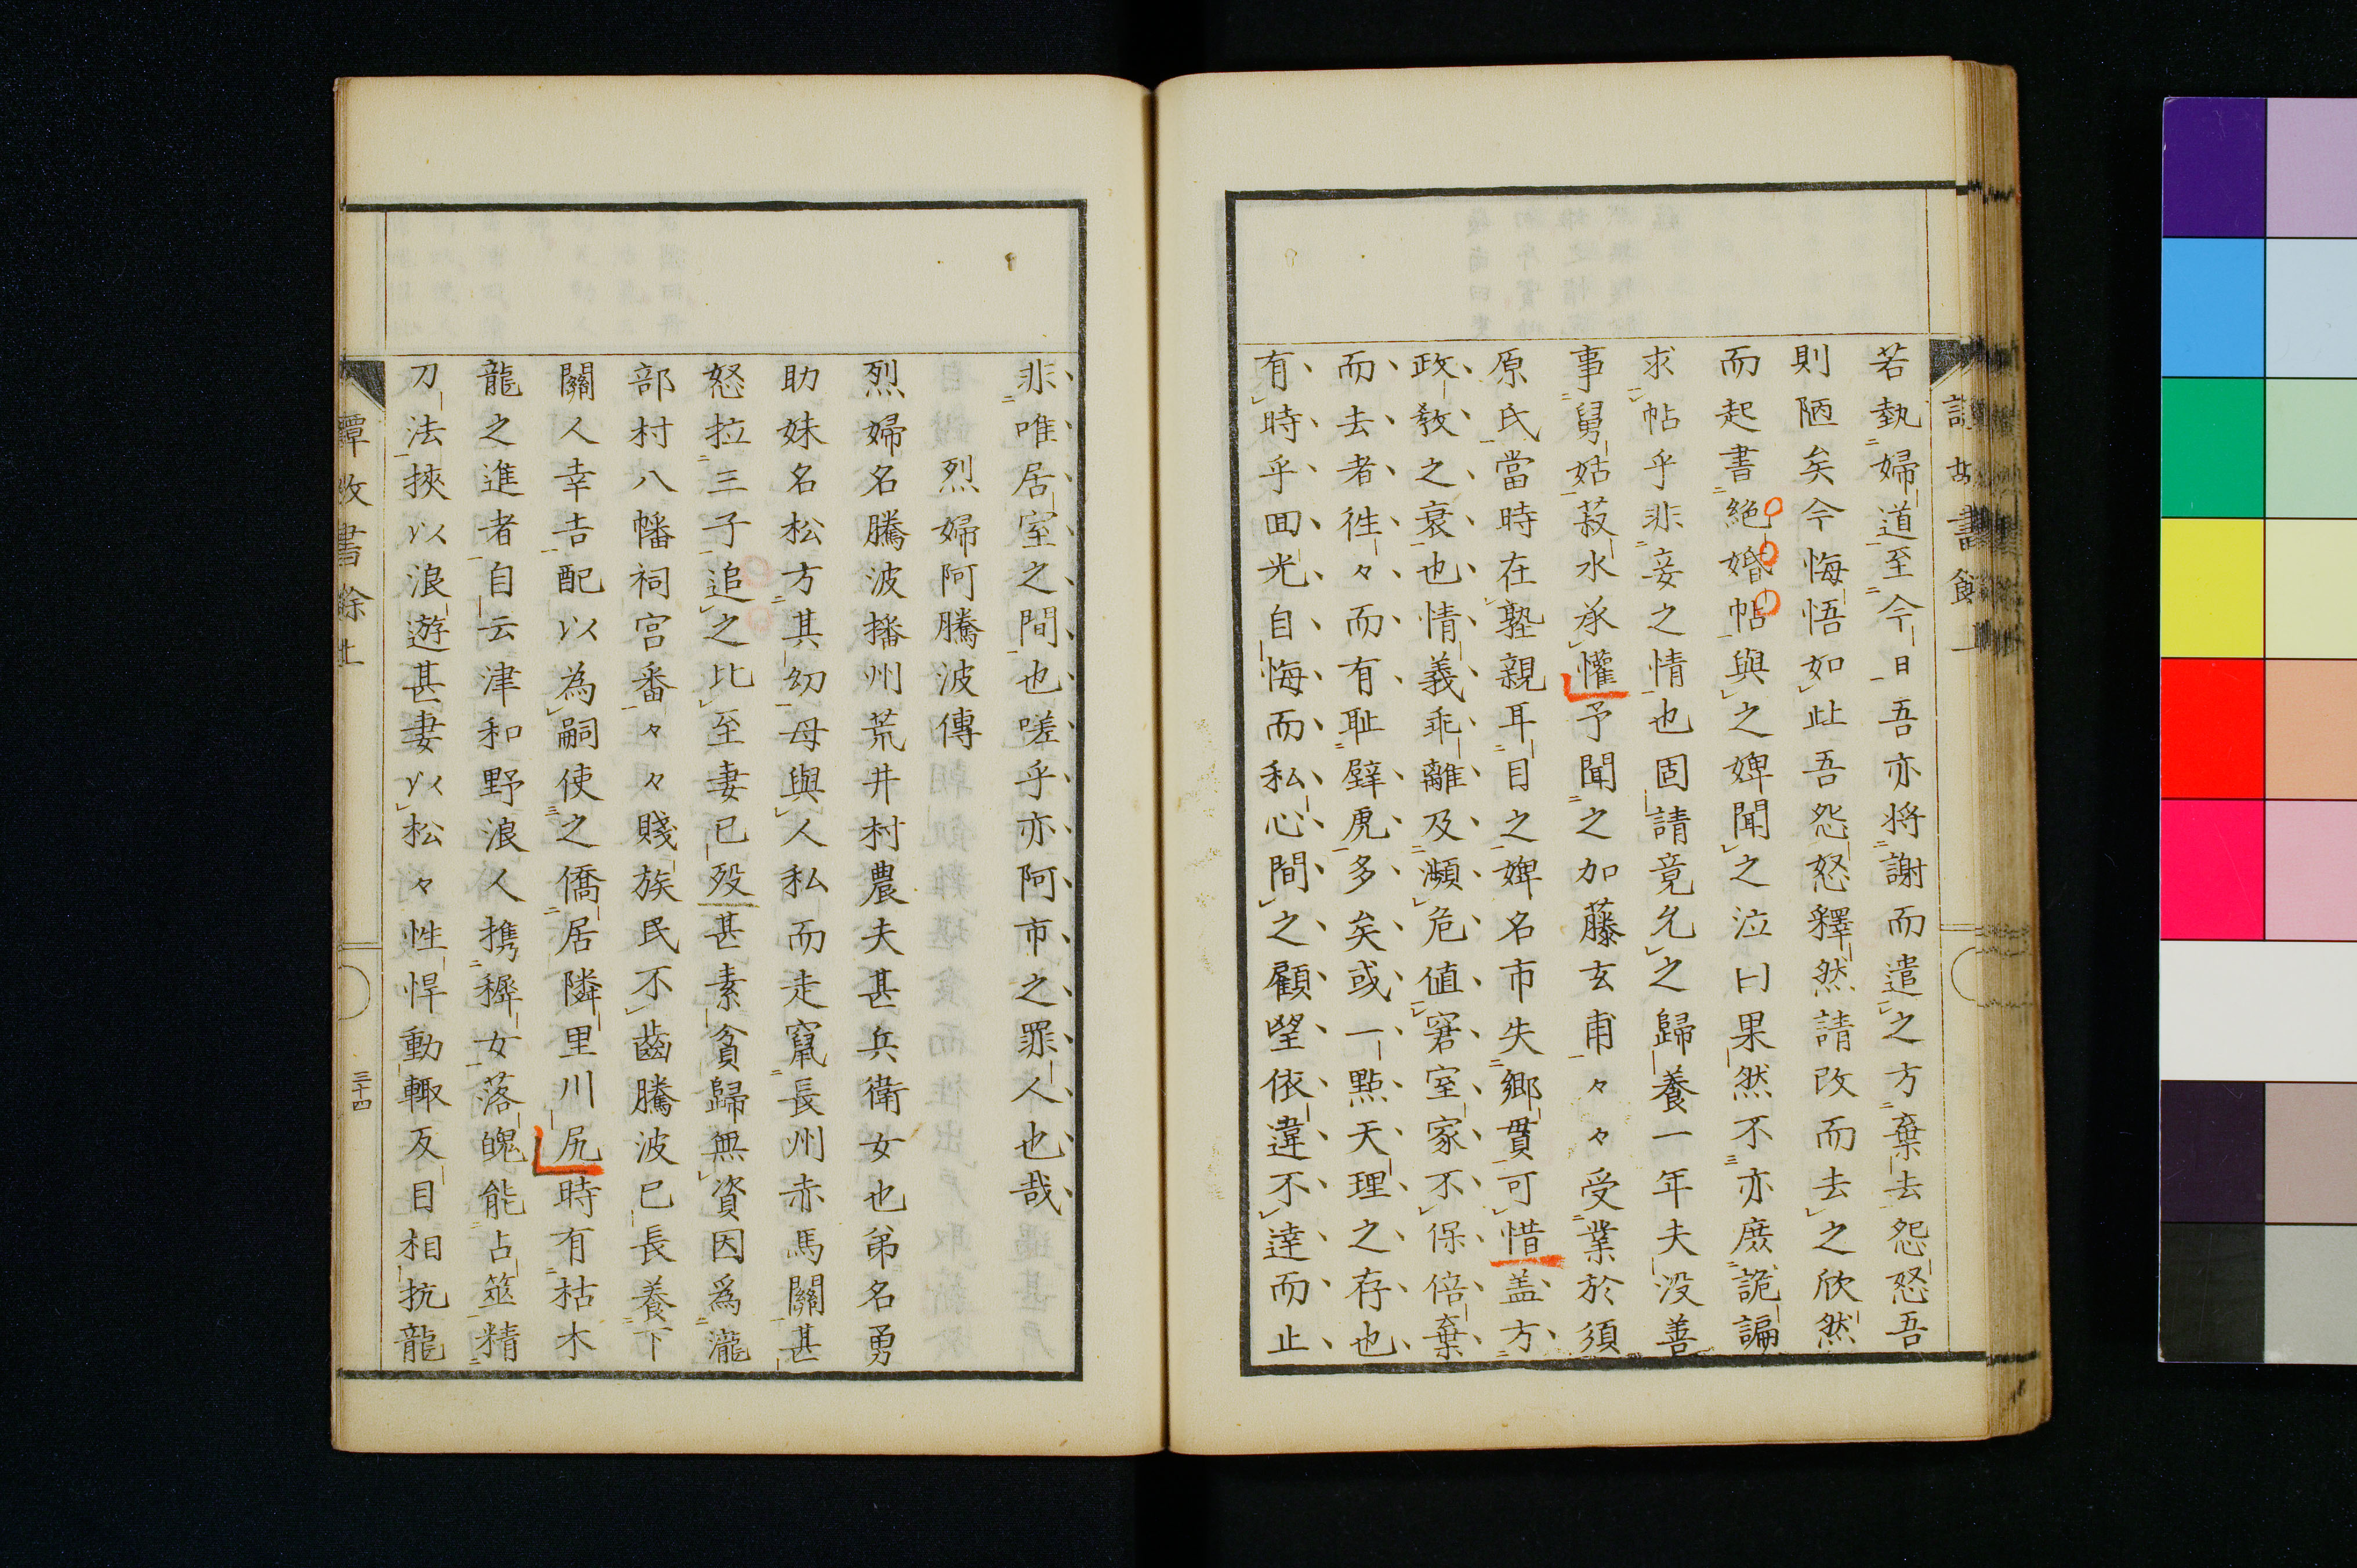 若執婦道至今日吾亦将謝而遣之方棄去怨怒吾
則陋矣今悔悟如此吾怨怒釋然請改而去之欣然
而起書絶婚帖與之婢聞之泣曰果然不亦庶詭諞
求帖乎非妾之情也固請竟允之歸養一年夫没善
事舅姑菽水承懽予聞之加藤玄甫々々受業於須
原氏當時在塾親耳目之婢名市失郷貫可惜盖方
政教之衰也情義乖離及瀕危値窘室家不保倍棄
而去者徃々而有耻躄虎多矣或一點天理之存也
有時乎囬光自悔而私心間之顧望依違不達而止
非唯居室之間也嗟乎亦阿市之罪人也哉
烈婦阿騰波傳
烈婦名騰波播州荒井村農夫甚兵衛女也弟名勇
助妹名松方其幼母與人私而走竄長州赤馬關甚
怒拉三子追之比至妻已殁甚素貧歸無資因爲瀧
部村八幡祠宮番々々賤族民不齒騰波已長養下
關人幸吉配以為嗣使之僑居隣里川尻時有枯木
龍之進者自云津和野浪人携穉女落魄能占筮精
刀法挾以浪遊甚妻以松々性悍動輙反目相抗龍
譚故書餘上
三十四